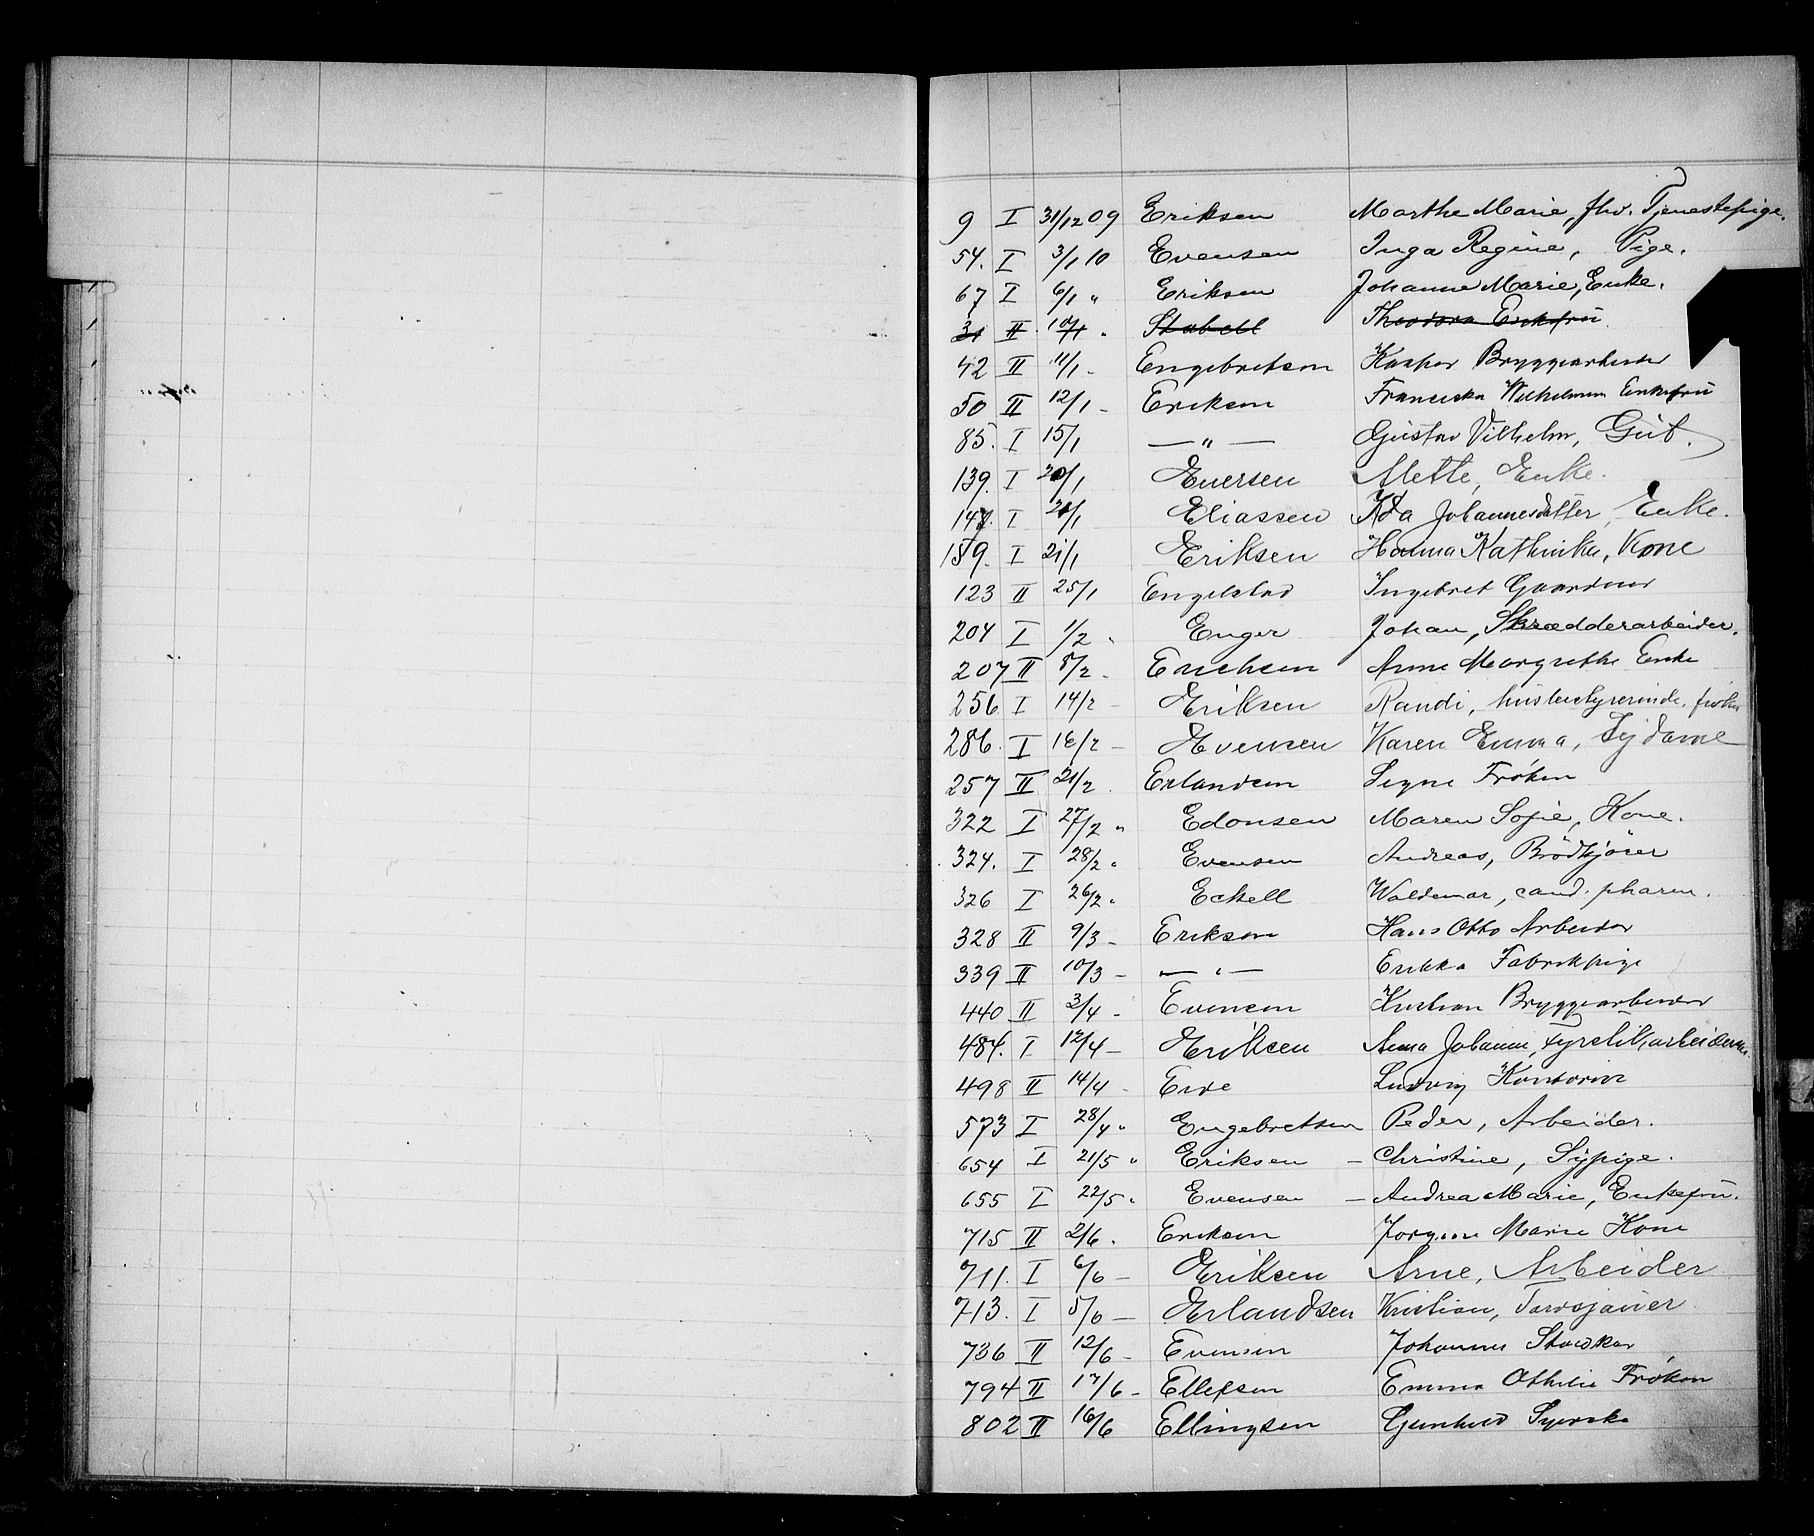 9 I 31/12 09 Eriksen Marthe Marie, fhv. Tjenestepige.
54. I 3/1 10 Evensen Inga Regine, Pige.
67 I 6/1 " Eriksen Johanne Marie, Enke.
31 II 10/1 " Stabell Theodora Enkefru
42 II 11/1 - Engebretsen Kasper Bryggearbeider
50 II 12/1 - Eriksen Franciska Wilhelmine Enkefru
85. I 15/1 — " — Gustav Vilhelm, Gut.
139. I 20/1 Eversen Mette, Enke.
147. I 21/1 Eliassen Ida Johannesdatter, Enke.
159. I 21/1 Eriksen Hanna Kathinka, Kone
123 II 25/1 Engelstad Ingebret Gaardmand
204 I 1/2 " Enger Johan, Skrædderarbeider.
207 II 5/2 - Erichsen Anne Margrethe Enke
256 I 14/2 - Eriksen Randi, husbestyrerinde, frøken
286. I 16/2 - Evensen Karen Emma, Sydame
257 II 21/2 . Erlandsen Signe Frøken
322 I 27/2 " Edonsen Maren Sofie, Kone.
324. I 28/2 " Evensen Andreas, Brødkjører
326 I 26/2 " Eckell Waldemar, cand. pharm.
328 II 9/3 - Eriksen Hans Otto Arbeider
339 II 10/3 - — " — Erikka Fabrikpige
440 II 3/4 - Evensen Kristian Bryggearbeider
484. I 12/4 - Eriksen Anna Johanne, Fyrstikarbeiderske.
498 II 14/4 - Eide Ludvig Kontorist
573 I 28/4 " Engebretsen Peder, Arbeider.
654 I 21/5 " Eriksen - Christine, Sypige.
655 I 22/5 " Evensen - Andrea Marie, Enkefru.
715 II 2/6 . Eriksen Jørgine Marie Kone
711. I 6/6 - Eriksen Arne, Arbeider
713. I 5/6 - Erlandsen Kristian,
736 II 12/6 - Evensen Johannes Snedker
794 II 17/6 - Ellefsen Emma Othilie Frøken
802 II 16/6 Ellingsen Gunhild Syerske